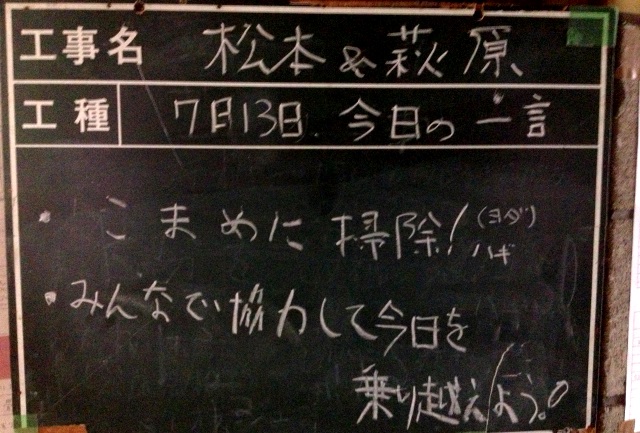 工事名 松本&萩原
工種 7月13日 今日の一言
・こまめに掃除!(ヨダ)
ハギ
・みんなで協力して今日を
乗り越えよう。